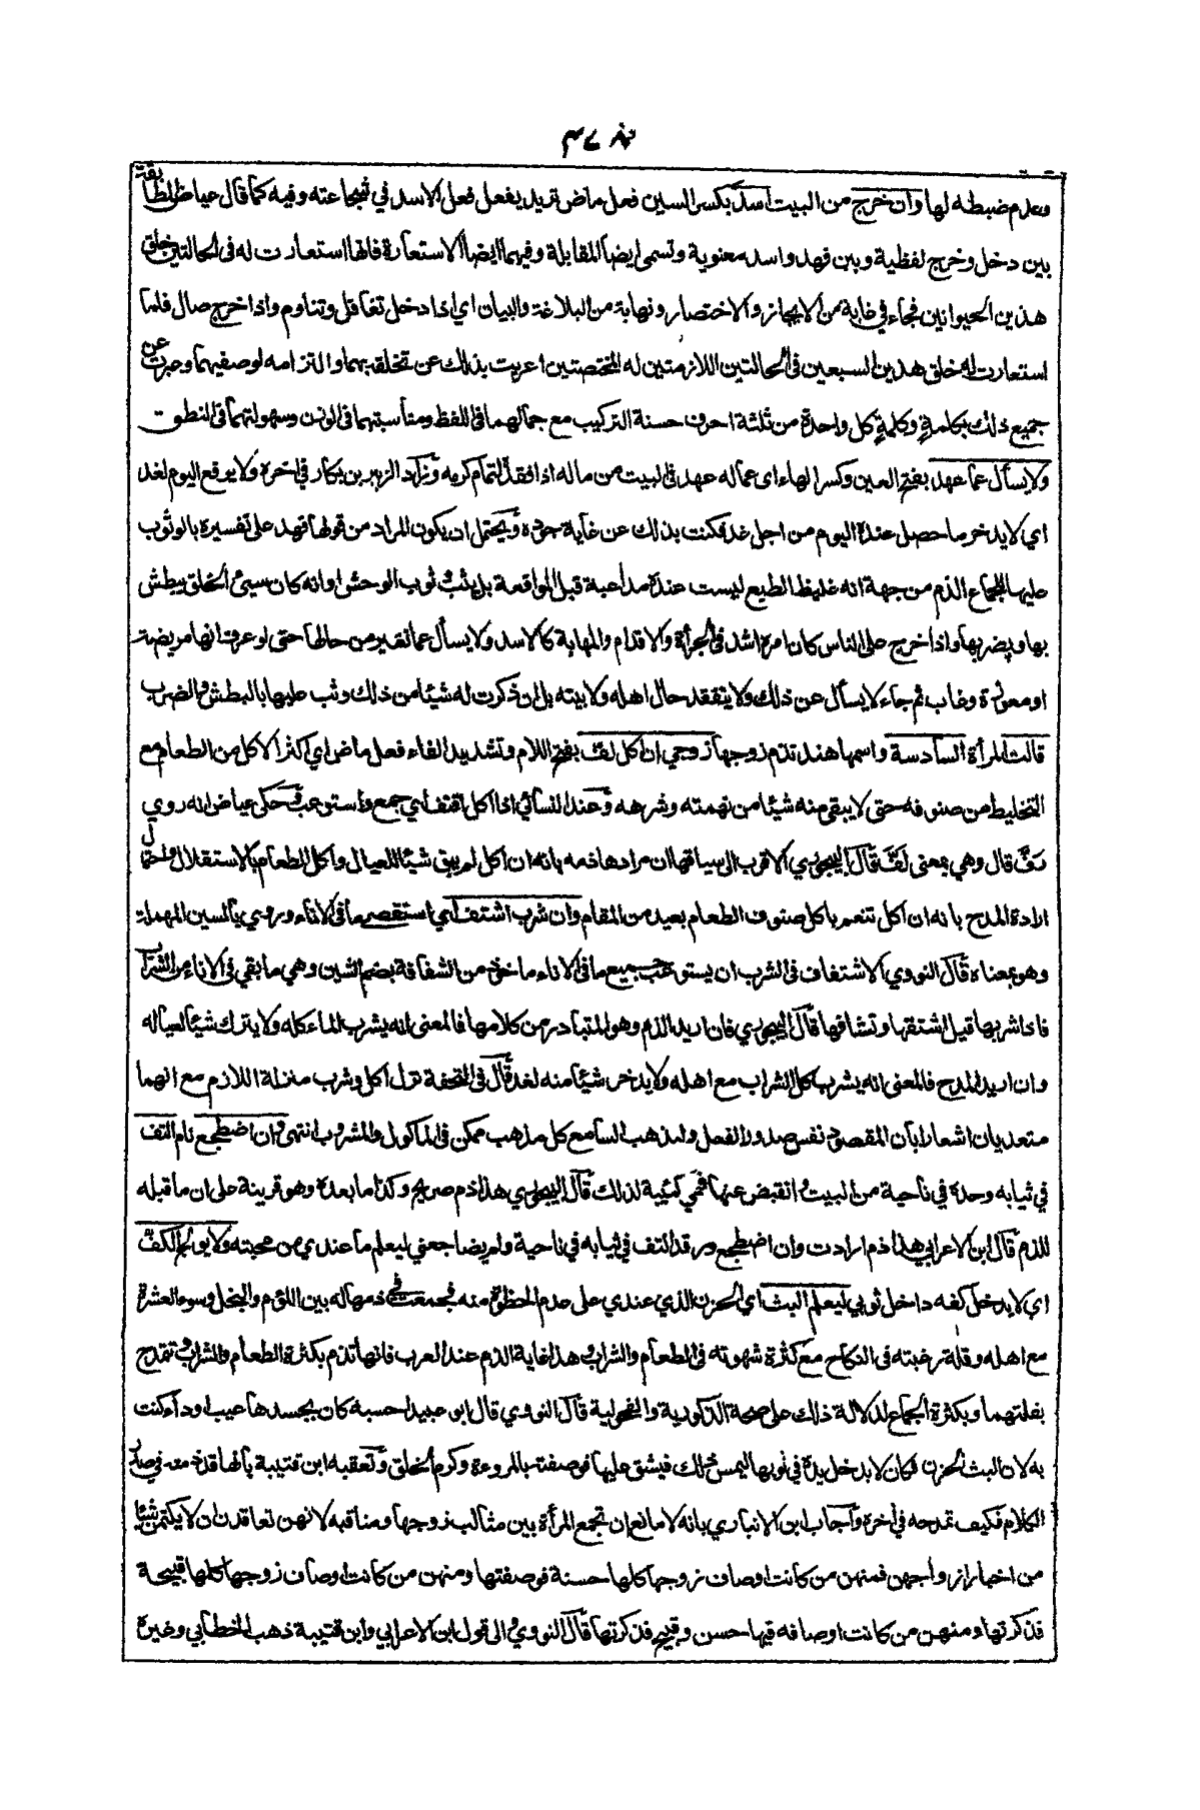 وعدم ضبطه لها وان خرج من البيت اسد بكسر السين فعل ماض تريد يفعل فعل الاسد في شجاعته وفيه كما قال عياض المطابقة
بين دخل وخرج لفظية وبين فهد واسد معنوية وتسمى ايضا المقابلة وفيهما ايضا الاستعارة فانها استعارت له في الحالتين خلق
هذين الحيوانين فجاء في غاية من الايجاز والاختصار ونهاية من البلاغة والبيان اي اذا دخل تغافل وتناوم واذا خرج صال فلما
استعارت له خلق هذين السبعين في الحالتين اللازمتين له المختصتين اعربت بذلك عن تخلقه بهما والتزامه لوصفيهما وعبرت عن
جميع ذلك بكلمة وكلمة كل واحدة من ثلثة احرف حسنة التركيب مع جمالهما في اللفظ ومناسبتهما في الوزن وسهولتهما في النطق
ولا يسأل عما عهد بفتح العين وكسر الهاء اي عما له عهد في البيت من ماله اذا فقد التمام كرمه وزاد الزبير بن بكار في اخره ولا يرفع اليوم لغد
اي لا يدخر ما حصل عنده اليوم من اجل غد فكنت بذلك عن غاية جوده ويحتمل ان يكون المراد من قولها فهد على تفسيره بالوثوب
عليها للجماع الذم من جهة انه غليظ الطبع ليست عنده مداعبة قبل المواقعة بل يثب وثوب الوحش او انه كان سيئ الخلق يبطش
بها ويضربها واذا خرج على الناس كان امره اشد في الجرأة والاقدام والمهابة كالاسد ولا يسأل عما تغير من حالها حتى لو عرف انها مريضة
او معوزة وغاب ثم جاء لا يسأل عن ذلك ولا يتفقد حال اهله ولا بيته بل ان ذكرت له شيئا من ذلك وثب عليها بالبطش والضرب
قالت المرأة السادسة واسمها هند تذم زوجها زوجي ان اكل لف بفتح اللام وتشديد الفاء فعل ماض اي اكثر الاكل من الطعام مع
التخليط من صنوفه حتى لا يبقي منه شيئا من نهمته وشرهه وعند النسائي اذا اكل اقتف اي جمع واستوعب وحكى عياض انه روي
رف قال وهي بمعنى لف قال البيجوري الاقرب الى سياقها ان مرادها ذمه بانه ان اكل لم يبق شيئا للعيال واكل الطعام بالاستقلال واحتمال
ارادة المدح بانه ان اكل تنعم باكل صنوف الطعام بعيد من المقام وان شرب اشتف اي استقصى ما في الاناء وروي بالسين المهملة
وهو بمعناه قال النووي الاشتفاف في الشرب ان يستوعب جميع ما في الاناء ماخوذ من الشفافة بضم الشين وهي ما بقي في الاناء من الشراب
فاذا شربها قيل اشتفها وتشافها قال البيجوري فان اريد الذم وهو المتبادر من كلامها فالمعنى انه يشرب الماء كله ولا يترك شيئا لعياله
وان اريد المدح فالمعنى انه يشرب كل الشراب مع اهله ولا يدخر شيئا منه لغد قال في التحفة نزل اكل وشرب منزلة اللازم مع انهما
متعديان اشعارا بان المقصود نفس صدور الفعل وليذهب السامع كل مذهب ممكن في الماكول والمشروب انتهى وان اضطجع نام التف
في ثيابه وحده في ناحية من البيت وانقبض عنها فهي كئيبة لذلك قال البيجوري هذا ذم صريح وكذا ما بعده وهو قرينة على ان ما قبله
للذم قال ابن الاعرابي هذا ذم ارادت وان اضطجع ورقد التف في ثيابه في ناحية ولم يضاجعني ليعلم ما عندي من محبته ولا يولج الكف
اي لا يدخل كفه داخل ثوبي ليعلم البث اي الحزن الذي عندي على عدم الحظوة منه فجمعت في ذمها له بين اللؤم والبخل وسوء العشرة
مع اهله وقلة رغبته في النكاح مع كثرة شهوته في الطعام والشراب وهذا غاية الذم عند العرب فانها تذم بكثرة الطعام والشراب وتتمدح
بقلتهما وبكثرة الجماع لدلالة ذلك على صحة الذكورية والفحولية قال النووي قال ابو عبيد احسبه كان بجسدها عيب او داء كنت
به لان البث الحزن فكان لا يدخل يده في ثوبها ليمس ذلك فيشق عليها فوصفته بالمروءة وكرم الخلق وتعقبه ابن قتيبة بانها قد ذمته في صدر
الكلام فكيف تمدحه في اخره واجاب ابن الانباري بانه لا مانع ان تجمع المرأة بين مثالب زوجها ومناقبه لانهن تعاقدن ان لا يكتمن شيئا
من اخبار ازواجهن فمنهن من كانت اوصاف زوجها كلها حسنة فوصفتها ومنهن من كانت اوصاف زوجها كلها قبيحة
فذكرتها ومنهن من كانت اوصافه فيها حسن وقبيح فذكرتها قال النووي والى قول ابن الاعرابي وابن قتيبة ذهب الخطابي وغيره